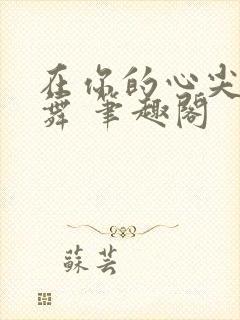 在你的心尖
舞 笔趣阁
蘇芸